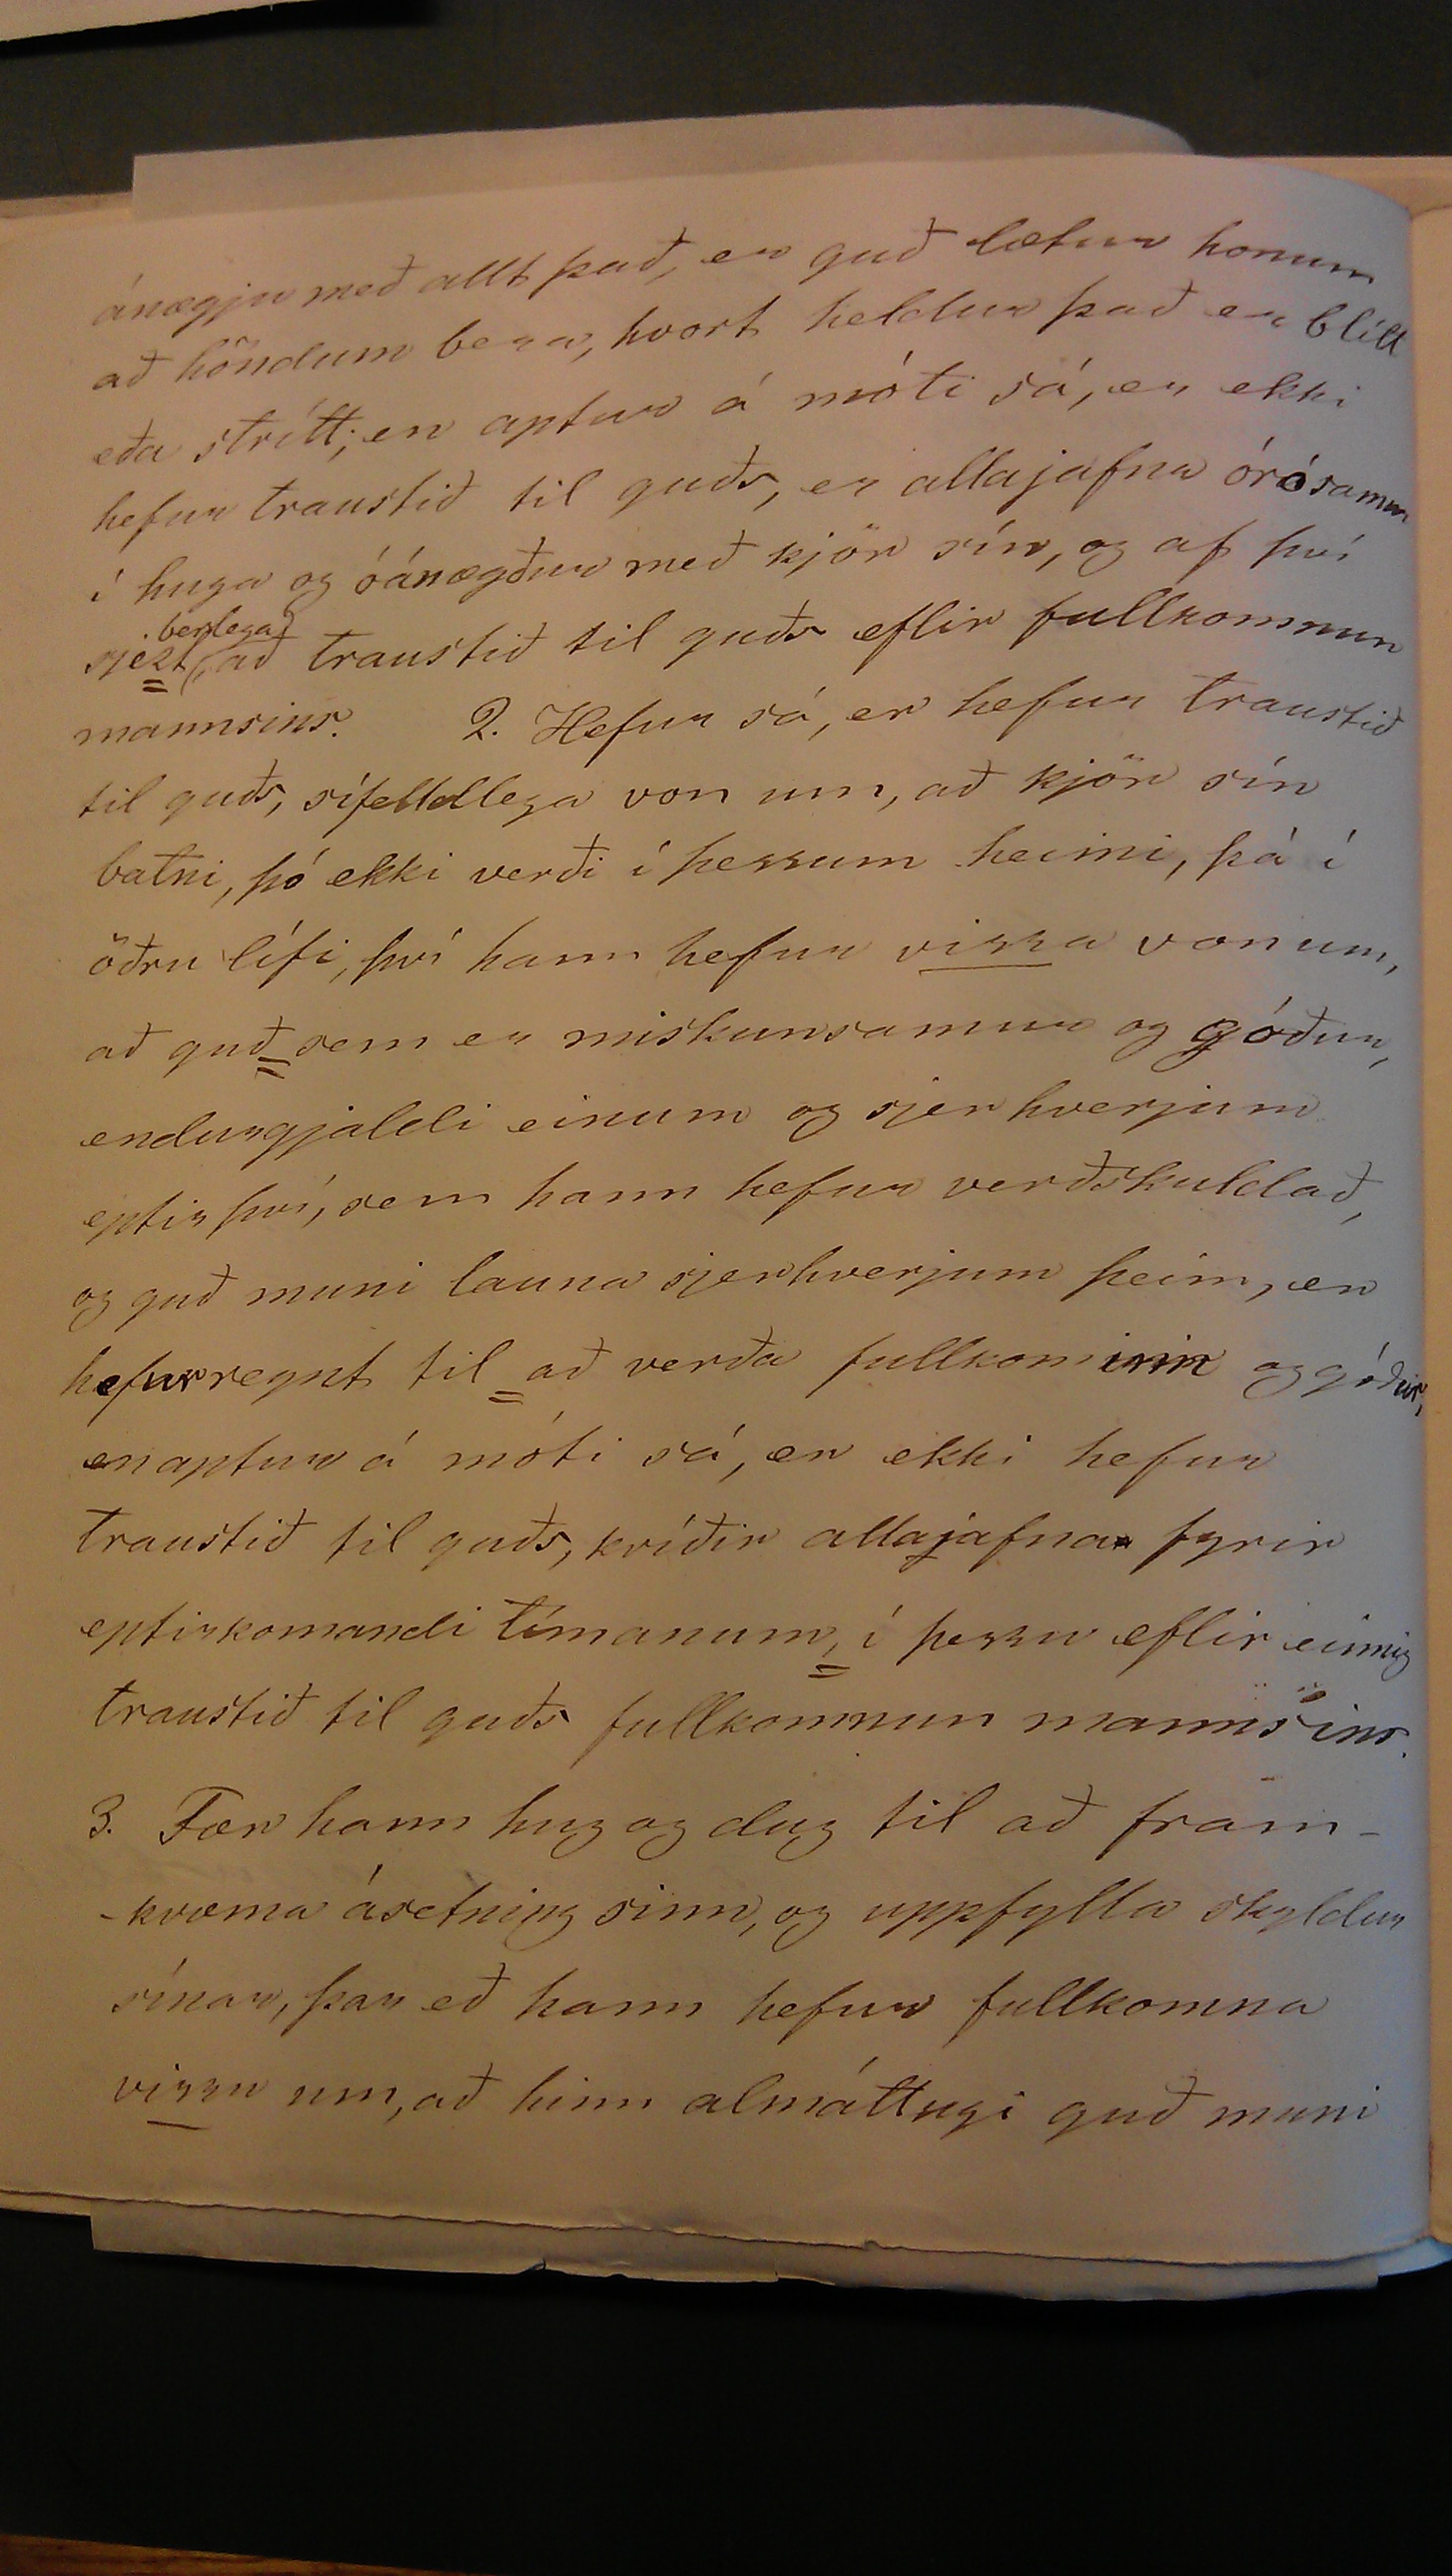 ánægju með allt það, er guð lætur honum
að höndum bera, hvort heldur það er blítt
eða strítt; en aptur á móti sá, er ekki
hefur traustið til guðs, er allajafna órósamur
í huga og óánægður með kjör sín, og af því
berlega
sjezt, að traustið til guðs eflir fullkomnun
mannsins. 2. Hefur sá, er hefur traustið
til guðs, sífelldlega von um, að kjör sín
batni, þó ekki verði í þessum heimi, þá í
öðru lífi, því hann hefur vissa von um,
að guð sem er miskunsamur og góður,
endurgjaldi einum og sjerhverjum
eptir því, sem hann hefur verðskuldað,
og guð muni launa sjerhverjum þeim, er
hefur reynt til að verða fullkominn og góður,
en aptur á móti sá, er ekki hefur
traustið til guðs, kvíðir allajafna fyrir
eptirkomandi tímanum, í þessu eflir einnig
traustið til guðs fullkomnun mannsins.
3. Fær hann hug og dug til að fram-
-kvæma ásetning sinn, og uppfylla skyldur
sínar, þar eð hann hefur fullkomna
vissu um, að hinn almáttugi guð muni